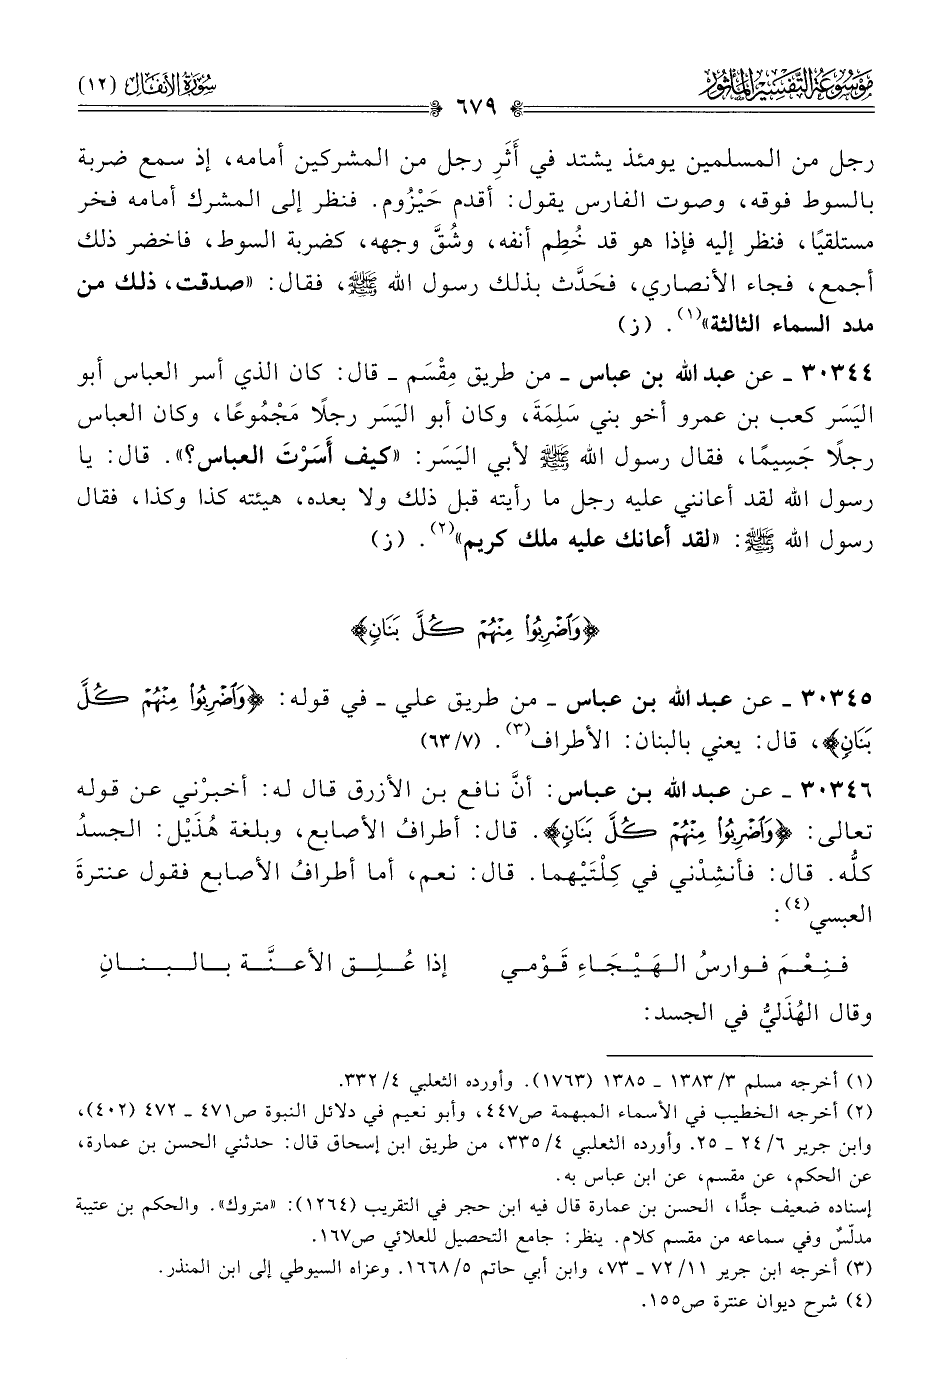 موسوعة التفسير المأثور
سورة الأنفال (١٢)
٦٧٩
رجل من المسلمين يومئذ يشتد في أَثَرِ رجل من المشركين أمامه، إذ سمع ضربة
بالسوط فوقه، وصوت الفارس يقول: أقدم حَيْزُوم. فنظر إلى المشرك أمامه فخر
مستلقيًا، فنظر إليه فإذا هو قد خُطِم أنفه، وشُقَّ وجهه، كضربة السوط، فاخضر ذلك
أجمع، فجاء الأنصاري، فحَدَّث بذلك رسول الله ﷺ، فقال: «صدقت، ذلك من
مدد السماء الثالثة»(١). (ز)
٣٠٣٤٤ ـ عن عبد الله بن عباس ـ من طريق مِقْسَم ـ قال: كان الذي أسر العباس أبو
اليَسَر كعب بن عمرو أخو بني سَلِمَة، وكان أبو اليَسَر رجلًا مَجْمُوعًا، وكان العباس
رجلًا جَسِيمًا، فقال رسول الله ﷺ لأبي اليَسَر: «كيف أَسَرْتَ العباس؟». قال: يا
رسول الله لقد أعانني عليه رجل ما رأيته قبل ذلك ولا بعده، هيئته كذا وكذا، فقال
رسول الله ﷺ: «لقد أعانك عليه ملك كريم»(٢). (ز)
﴿وَٱضْرِبُوا۟ مِنْهُمْ كُلَّ بَنَانٍ﴾
٣٠٣٤٥ ـ عن عبد الله بن عباس ـ من طريق علي ـ في قوله: ﴿وَٱضْرِبُوا۟ مِنْهُمْ كُلَّ
بَنَانٍ﴾، قال: يعني بالبنان: الأطراف(٣). (٧/ ٦٣)
٣٠٣٤٦ ـ عن عبد الله بن عباس: أنَّ نافع بن الأزرق قال له: أخبرْني عن قوله
تعالى: ﴿وَٱضْرِبُوا۟ مِنْهُمْ كُلَّ بَنَانٍ﴾. قال: أطرافُ الأصابع، وبلغة هُذَيْل: الجسدُ
كلُّه. قال: فأنشِدْني في كِلْتَيْهما. قال: نعم، أما أطرافُ الأصابع فقول عنترةَ
العبسي(٤):
فـنِعْمَ فوارسُ الهَيْجَاءِ قَوْمي    إذا عُلِق الأعنَّة بالبنانِ
وقال الهُذَليُّ في الجسد:
(١) أخرجه مسلم ٣/ ١٣٨٣ ـ ١٣٨٥ (١٧٦٣). وأورده الثعلبي ٤/ ٣٣٢.
(٢) أخرجه الخطيب في الأسماء المبهمة ص٤٤٧، وأبو نعيم في دلائل النبوة ص٤٧١ ـ ٤٧٢ (٤٠٢)،
وابن جرير ٦/ ٢٤ ـ ٢٥. وأورده الثعلبي ٤/ ٣٣٥، من طريق ابن إسحاق قال: حدثني الحسن بن عمارة،
عن الحكم، عن مقسم، عن ابن عباس به.
إسناده ضعيف جدًّا، الحسن بن عمارة قال فيه ابن حجر في التقريب (١٢٦٤): «متروك». والحكم بن عتيبة
مدلّسٌ وفي سماعه من مقسم كلام. ينظر: جامع التحصيل للعلائي ص١٦٧.
(٣) أخرجه ابن جرير ١١/ ٧٢ ـ ٧٣، وابن أبي حاتم ٥/ ١٦٦٨. وعزاه السيوطي إلى ابن المنذر.
(٤) شرح ديوان عنترة ص١٥٥.